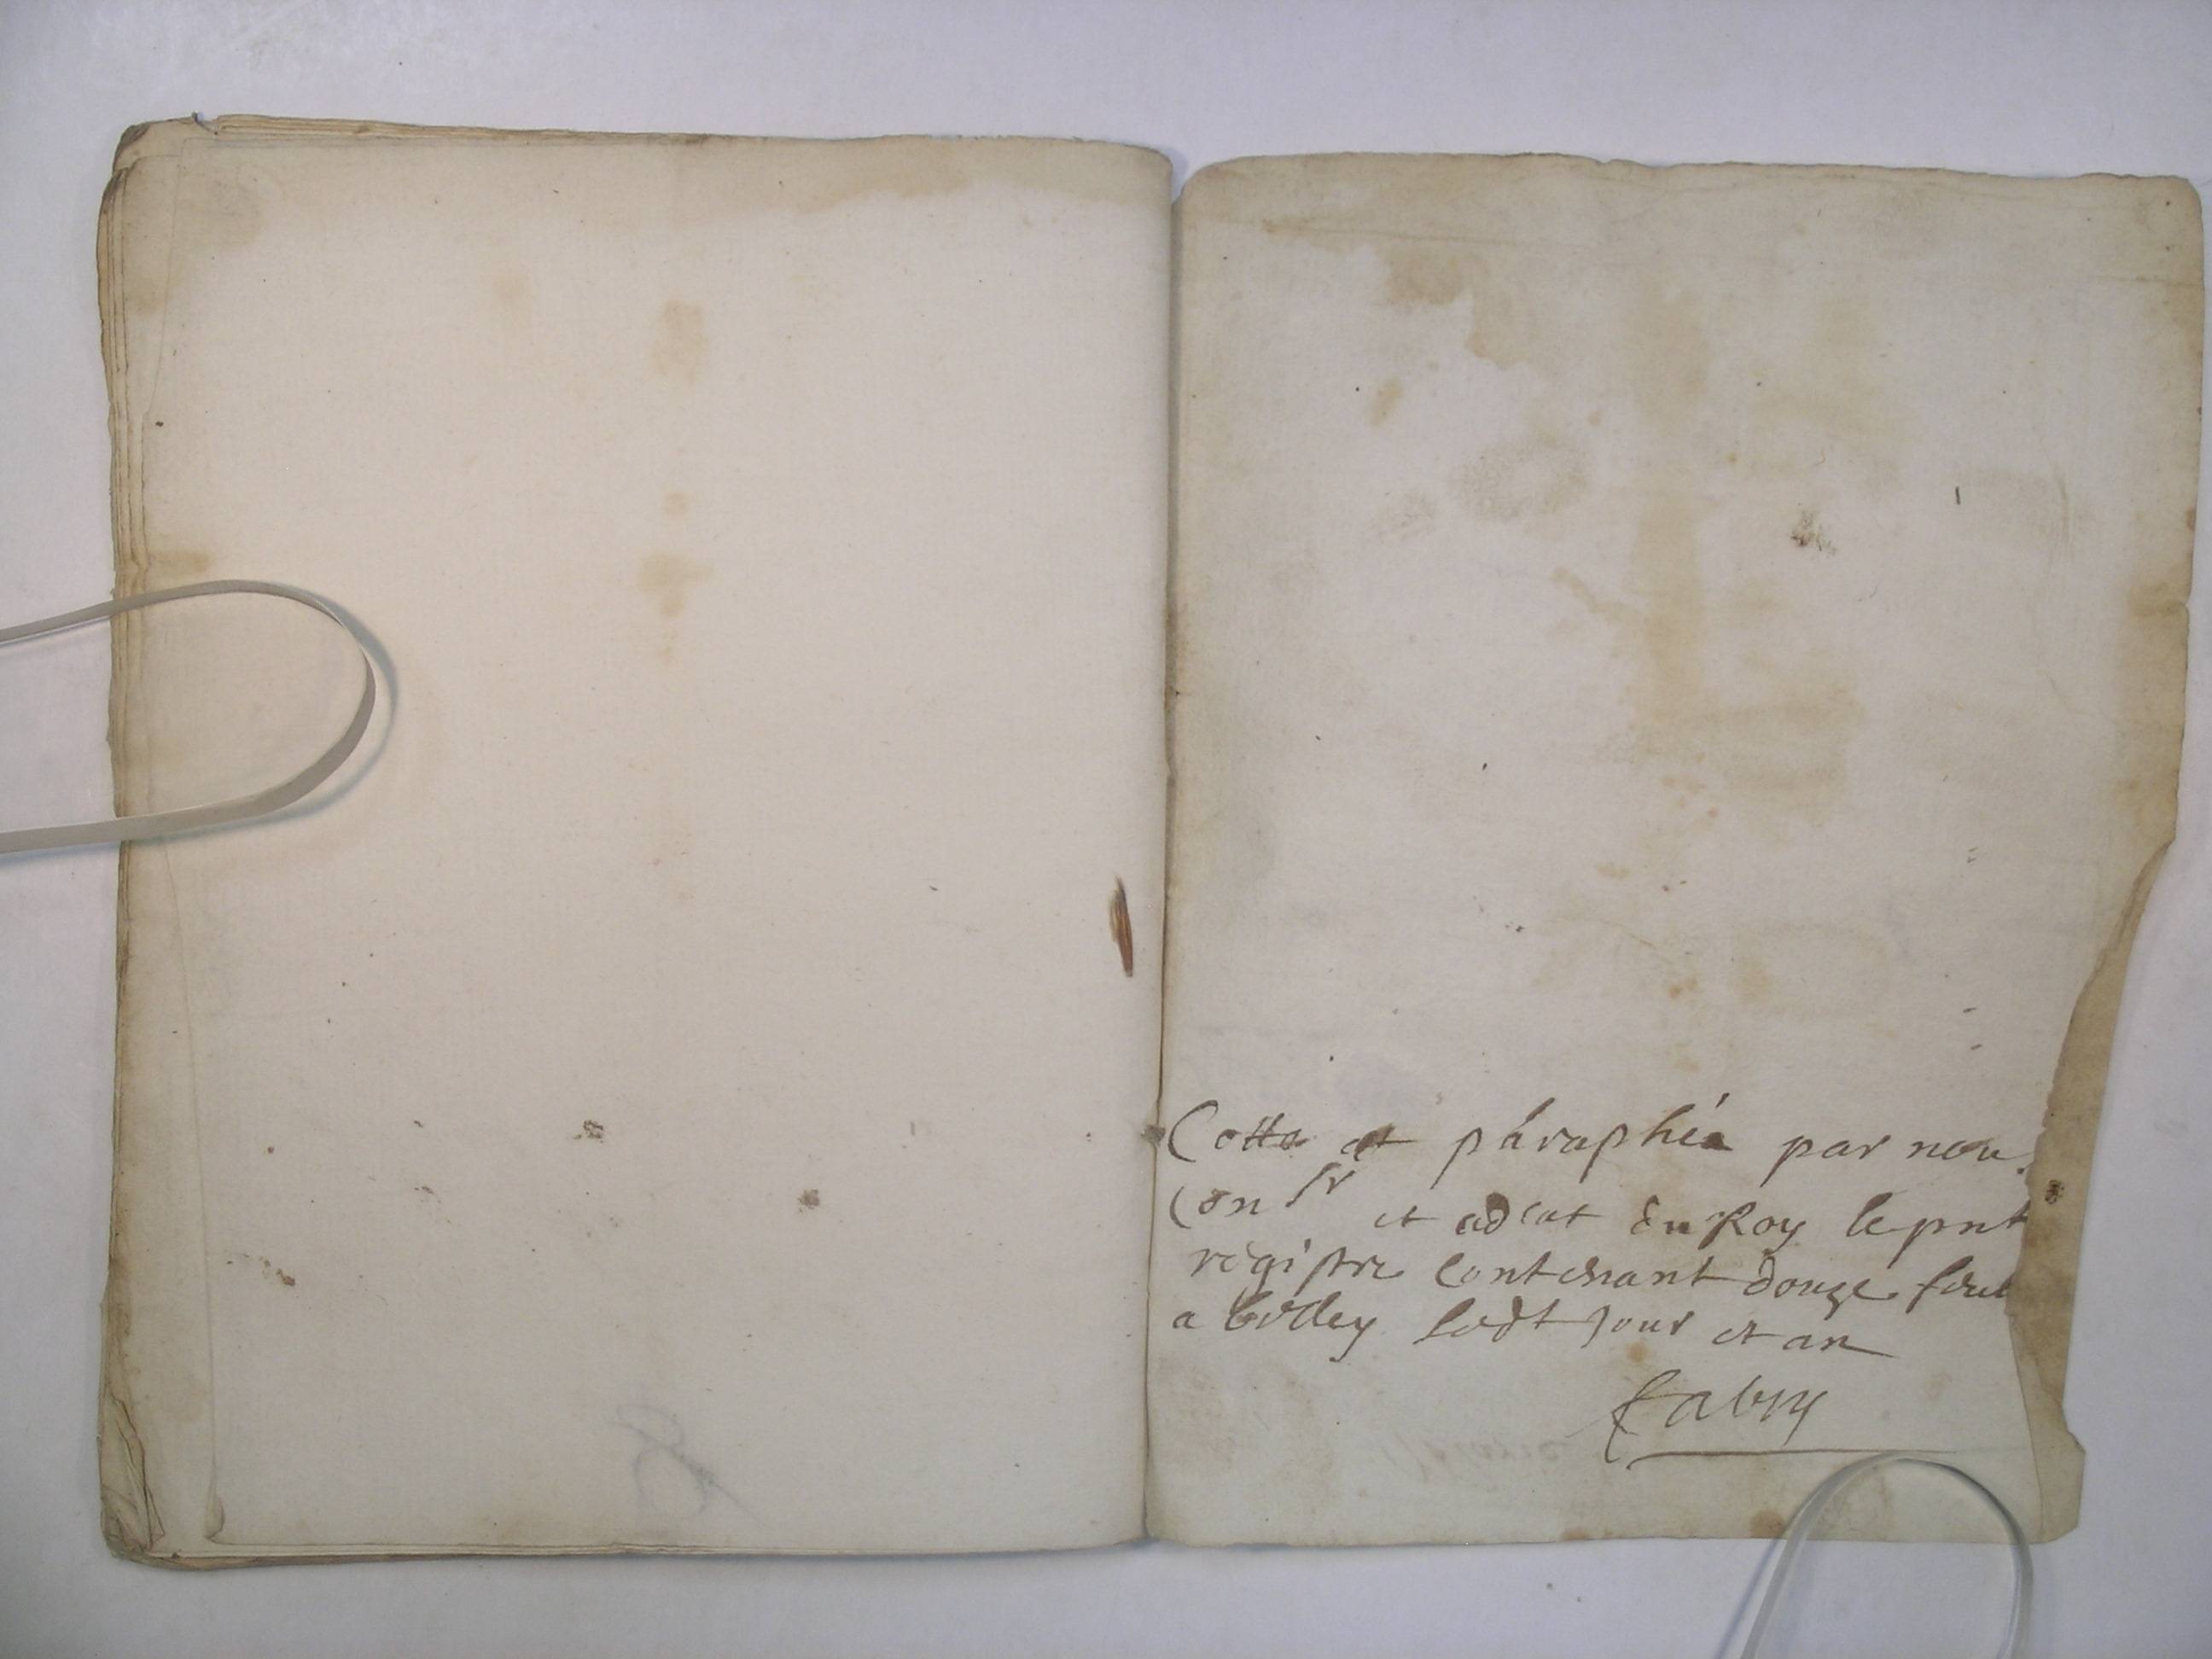 Cotte et paraphéa par nou
Con sr et adcat du Roy le pnt
registre contenant douze feuil
a belley ledt jour et an
Fabry